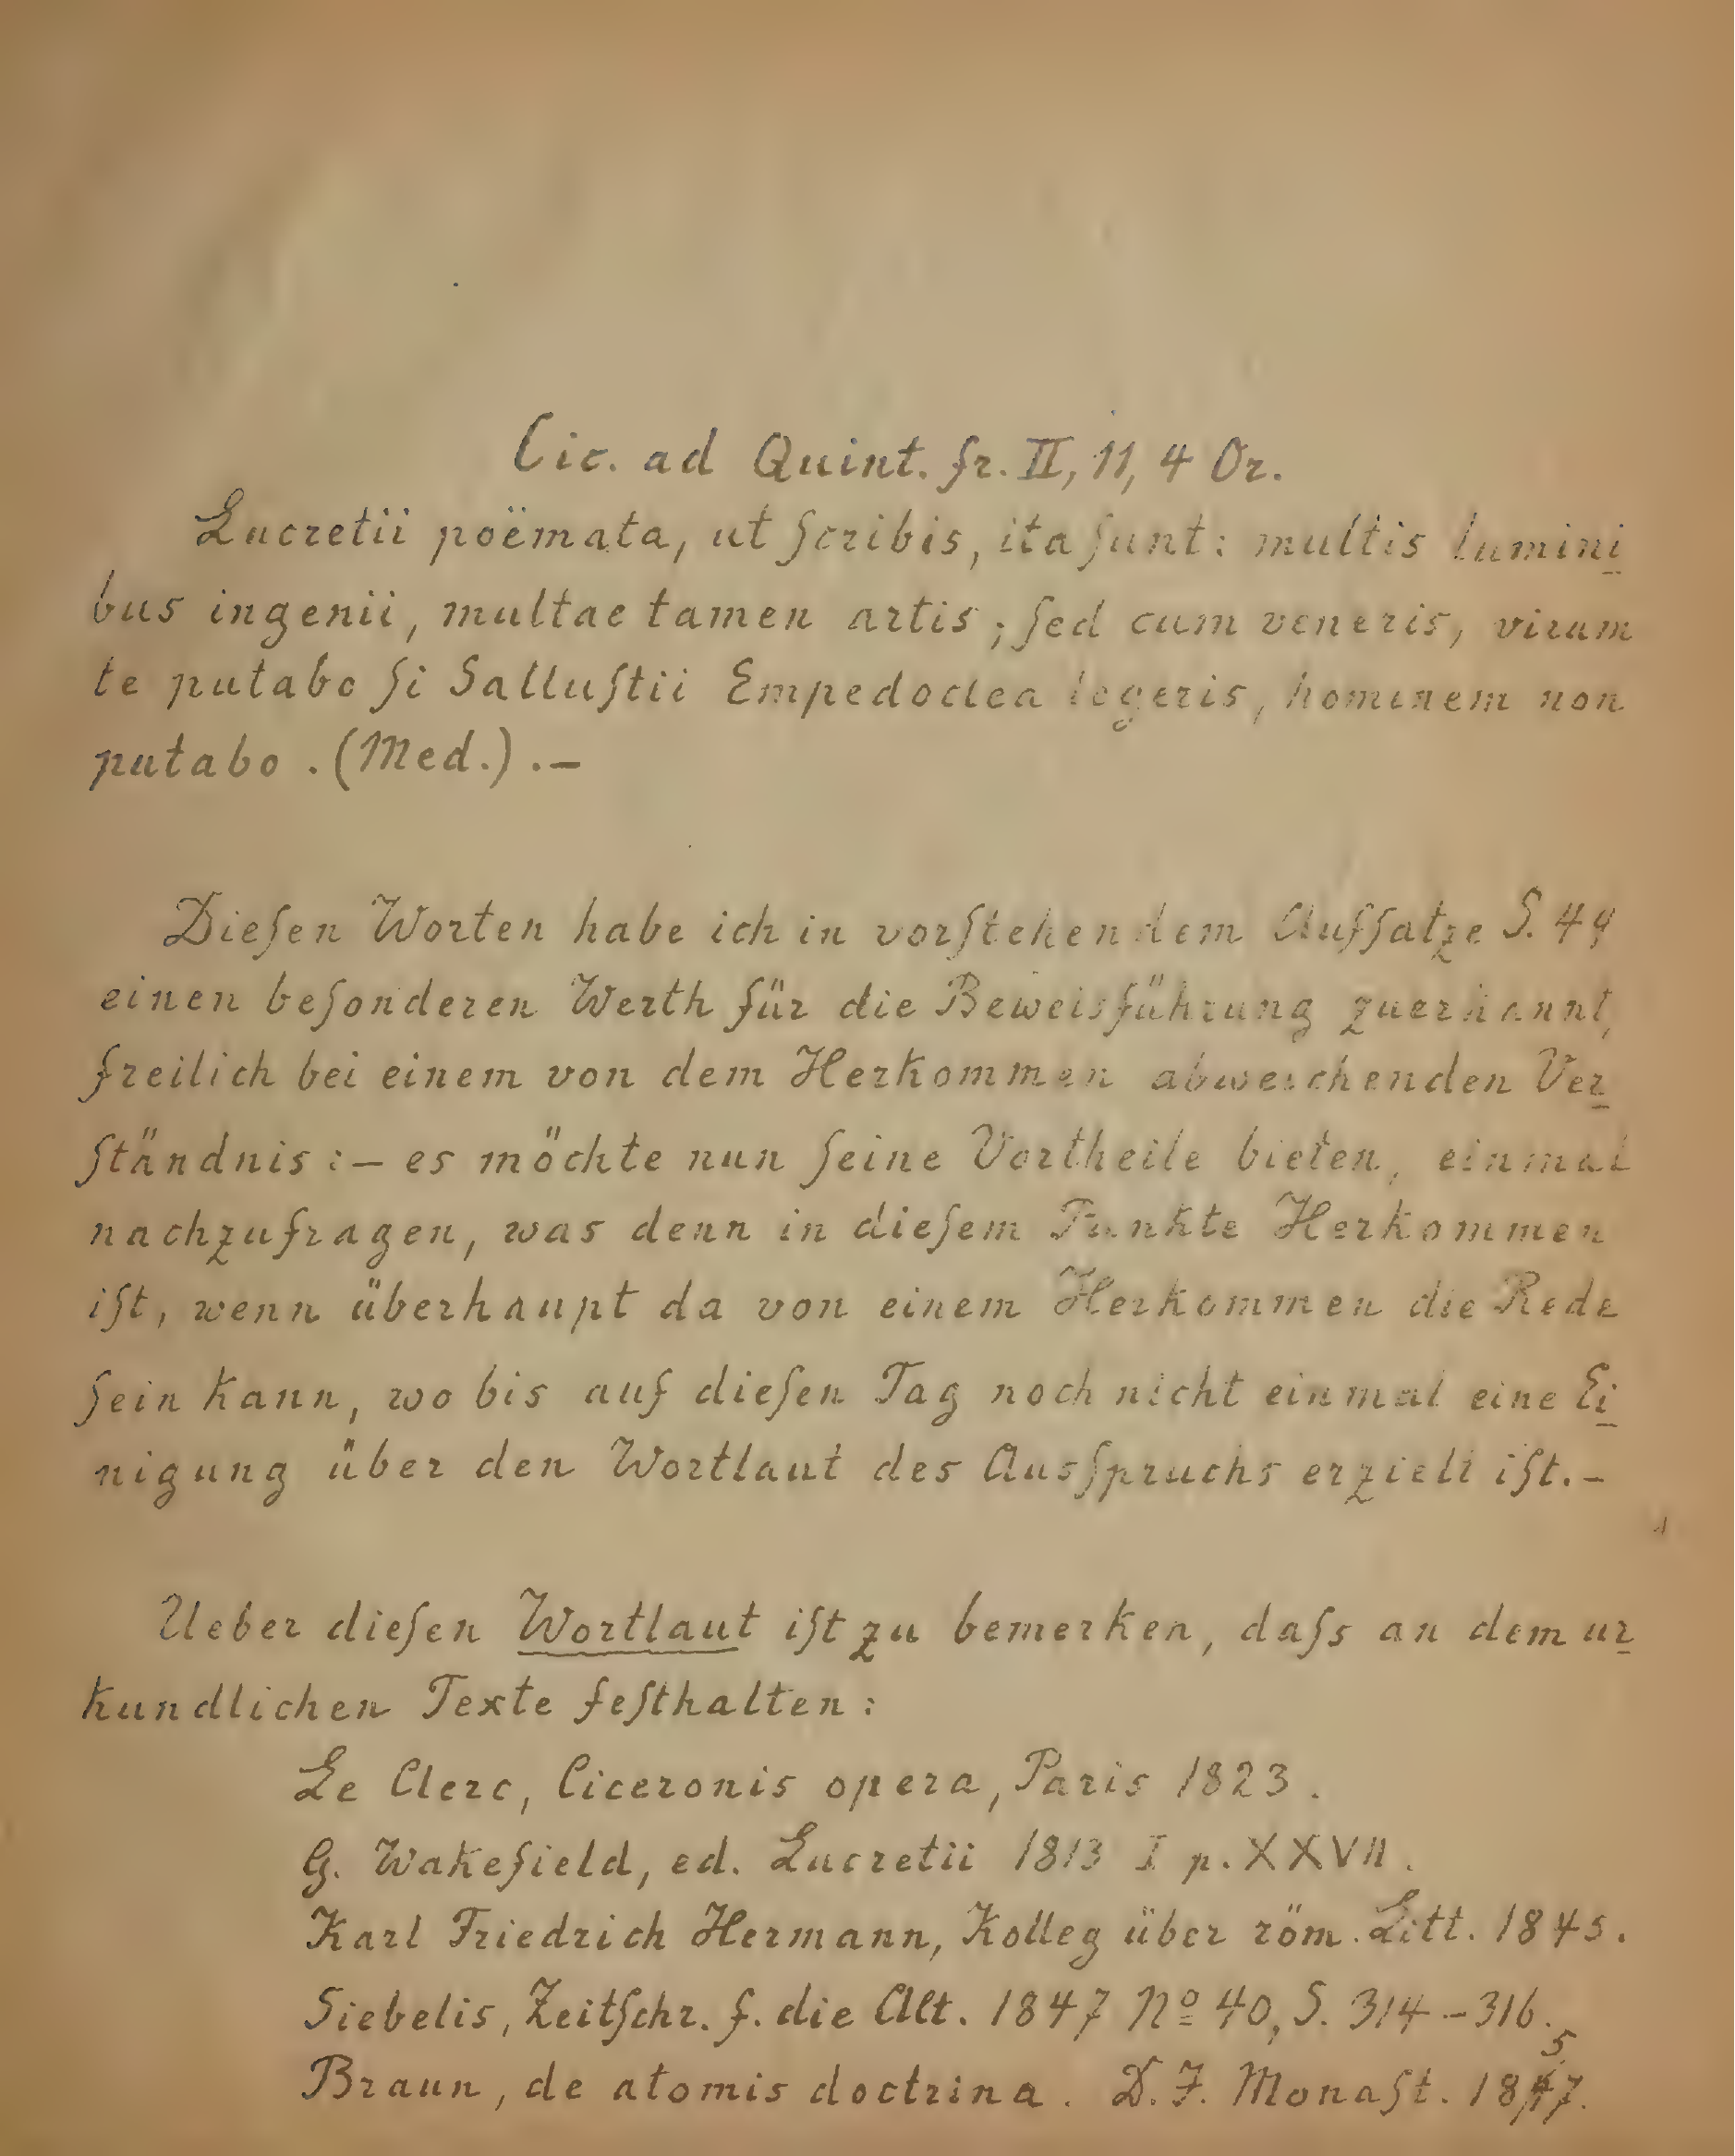 Cic. ad Quint. fr. II, 11, 4 Or.
Lucretii poëmata, ut ſcribis, ita ſunt: multis lumini
bus ingenii, multae tamen artis; ſed cum veneris, virum
te putabo ſi Salluſtii Empedoclea legeris, hominem non
putabo. (Med.).—
Dieſen Worten habe ich in vorſtehendem Aufſatze S. 49
einen beſonderen Werth für die Beweisführung zuerkannt,
freilich bei einem von dem Herkommen abweichenden Ver
ſtändnis:— es möchte nun ſeine Vortheile bieten, einmal
nachzufragen, was denn in dieſem Punkte Herkommen
iſt, wenn überhaupt da von einem Herkommen die Rede
ſein kann, wo bis auf dieſen Tag noch nicht einmal eine Ei
nigung über den Wortlaut des Ausſpruchs erzielt iſt.-
Ueber dieſen Wortlaut iſt zu bemerken, daſs an dem ur
kundlichen Texte feſthalten:
Le Clerc, Ciceronis opera, Paris 1823.
G. Wakefield, ed. Lucretii 1813 I p. XXVII.
Karl Friedrich Hermann, Kolleg über röm. Litt. 1845.
Siebelis, Zeitſchr. f. die Alt. 1847 Nº 40, S. 314-316.
Braun, de atomis doctrina. D. J. Monaſt. 1857.